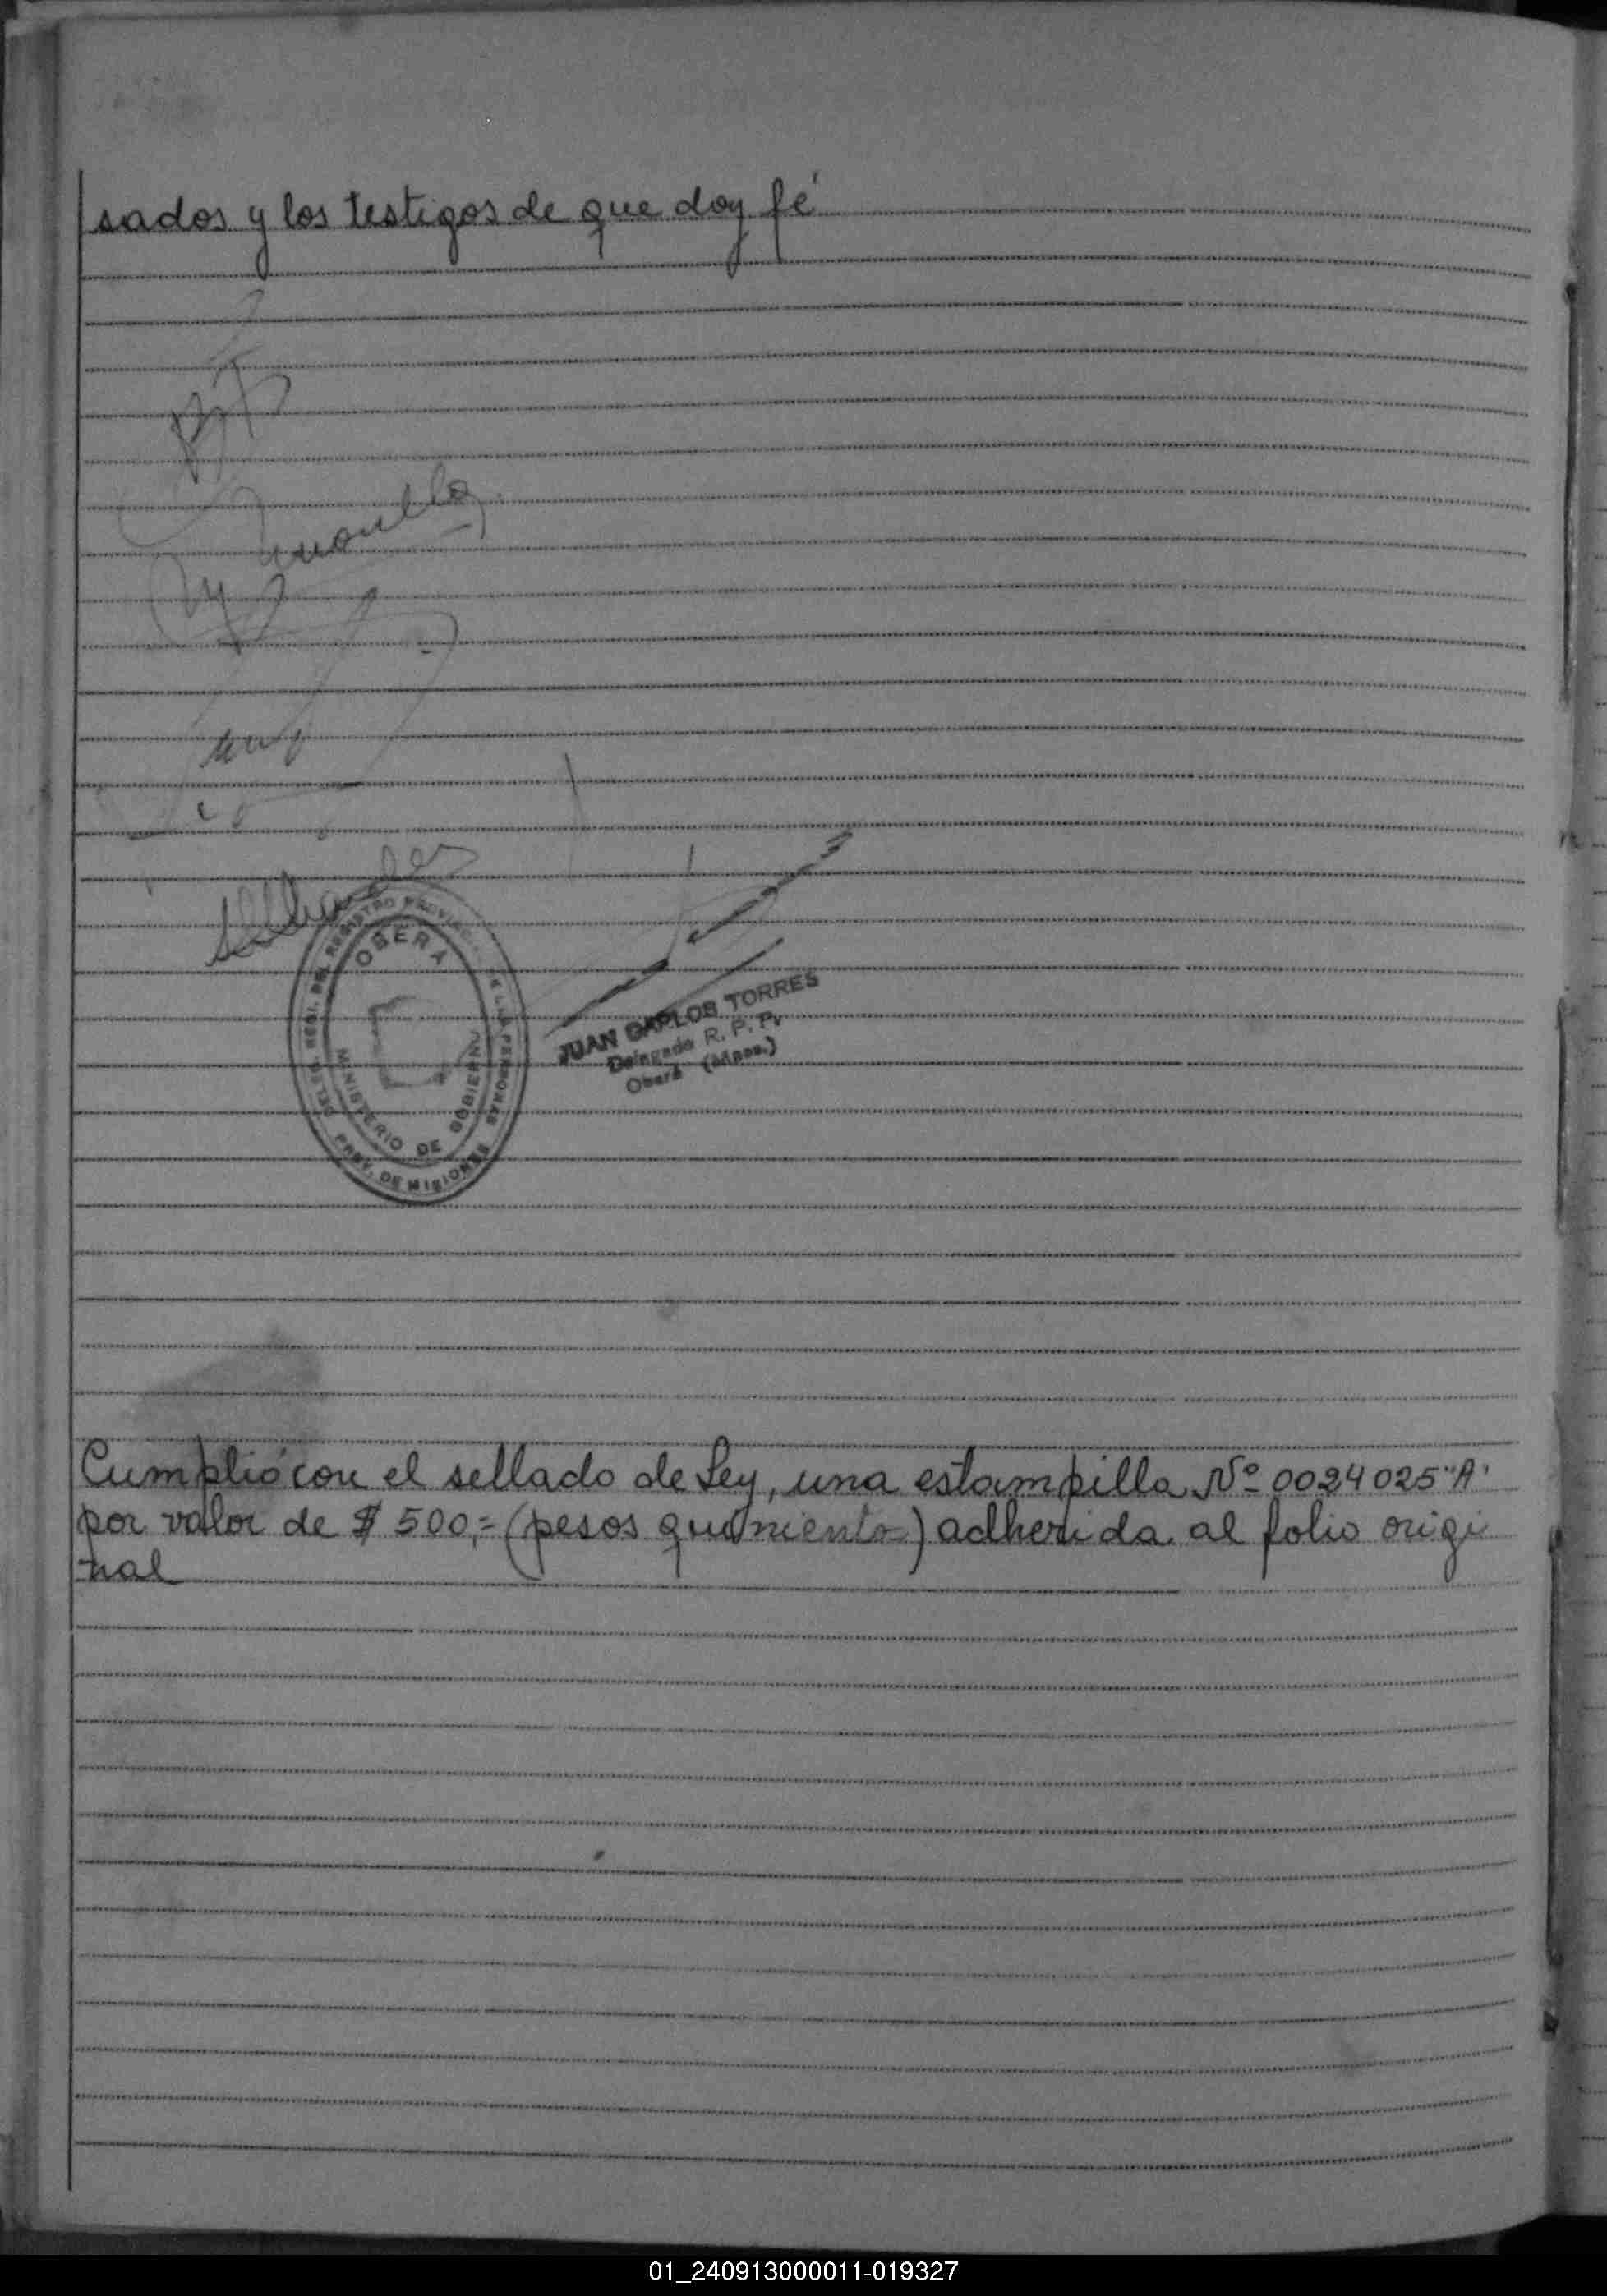 sados y los testigos de que doy fé
OBERA
DELG. REGI. DEL REGISTRO PROVINC. DE LAS PERSONAS
MINISTERIO DE GOBIERNO
PROV. DE MISIONES
JUAN CARLOS TORRES
Delegado R. P. P.
Oberá (Mnes.)
Cumplió con el sellado de Ley, una estampilla Nº 0024025 "A"
por valor de $ 500,= (pesos quiniento) adherida al folio origi
nal
01_240913000011-019327